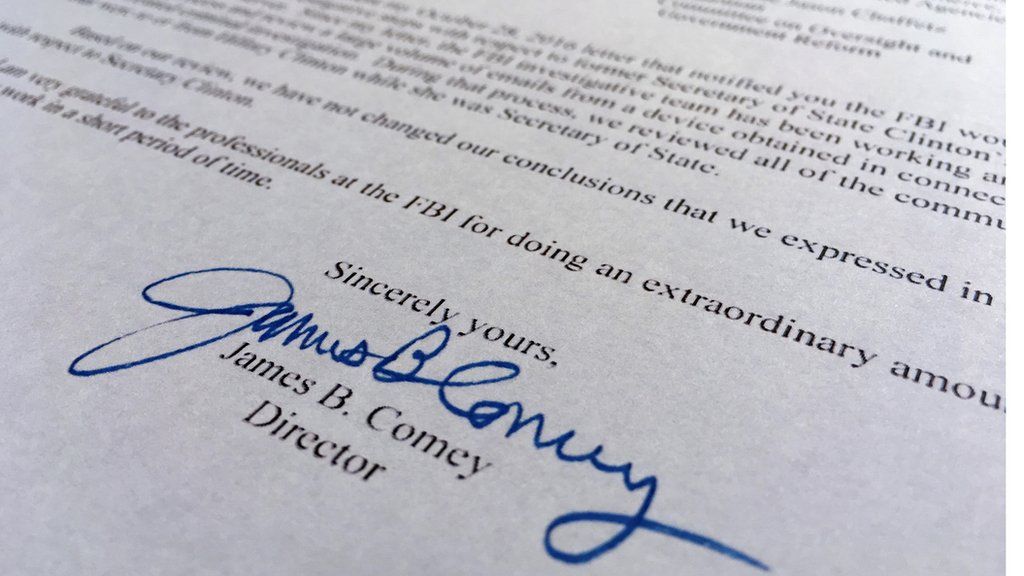 Jason Chaffetz
Committee on Oversight and
Government Reform
October 28, 2016 letter that notified you the FBI wou
steps with respect to former Secretary of State Clinton's
my letter, the FBI investigative team has been working ar
a large volume of emails from a device obtained in connec
investigation. During that process, we reviewed all of the commu
from Hillary Clinton while she was Secretary of State.
Based on our review, we have not changed our conclusions that we expressed in
with respect to Secretary Clinton.
I am very grateful to the professionals at the FBI for doing an extraordinary amou
work in a short period of time.
Sincerely yours,
James B Comey
James B. Comey
Director